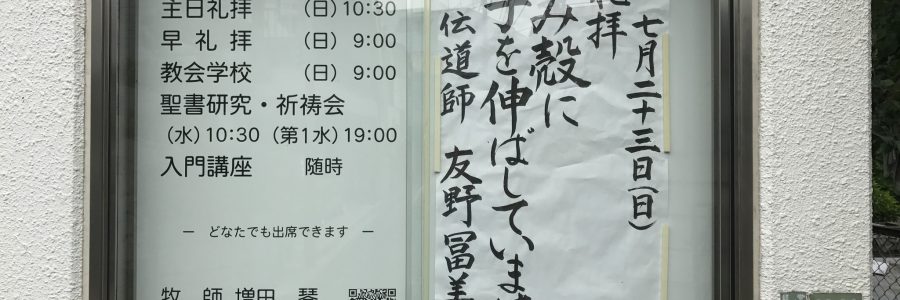 主日礼拝 (日) 10:30
早礼拝 (日) 9:00
教会学校 (日) 9:00
聖書研究・祈祷会
(水) 10:30 (第1水) 19:00
入門講座 随時
― どなたでも出席できます ―
牧 師 増田 琴
七月二十三日(日)
礼拝
み殻に
子を伸ばしていま
伝道師 友野富美